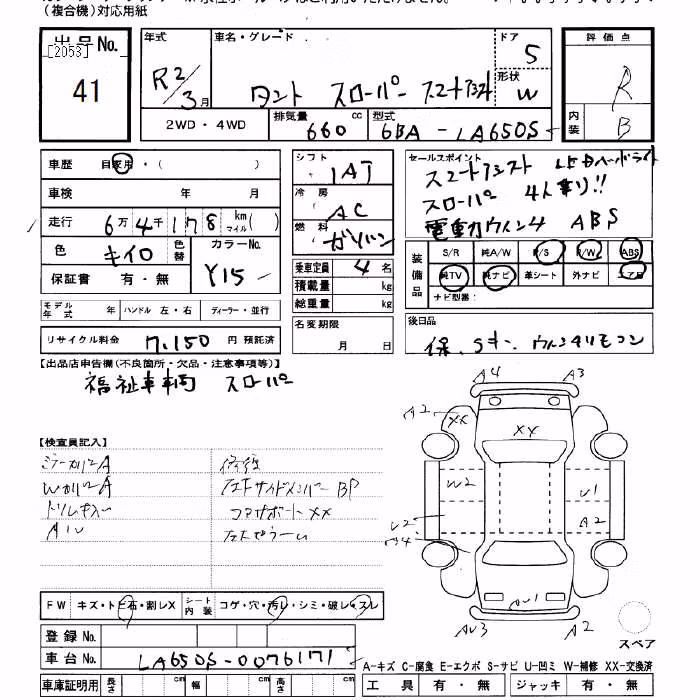 (複合機)対応用紙
出品No.
[2053]
41
年式
R2/3月
車名・グレード
タント スローパー スマートアシスト
ドア
5
形状
W
評価点
R
内装
B
2WD・4WD
排気量
660 cc
型式
6BA-LA650S
車歴 自家用・( )
車検 年 月
走行 6万4千178 km マイル( )
色 キイロ 色替
カラーNo.
Y15
保証書 有・無
シフト
IAT
冷房
AC
燃料
ガソリン
乗車定員 4名
積載量 kg
総重量 kg
セールスポイント
スマートアシスト LEDヘッドライト
スローパー 4人乗り!!
電動ウィンチ ABS
装備品
S/R 純A/W P/S P/W ABS
純TV 純ナビ 革シート 外ナビ エアB
ナビ型番:
モデル年式 年 ハンドル 左・右 ディーラー・並行
リサイクル料金 7,150 円 預託済
名変期限
月 日
後日品
保、Sキー、ウィンチリモコン
【出品店申告欄(不良箇所・欠品・注意事項等)】
福祉車輌 スローパ
【検査員記入】
ミラーカバーA
Wカバ2A
AW
修復
コアサポートXX
A4 A3
A2 XX
XX
W2 U1
A2
U2
AU1
AU3 A2
スペア
FW キズ・トビ石・割レX
シート内装 コゲ・穴・汚レ・シミ・破レ・スレ
登録No.
車台No. LA650S-0076171
A-キズ C-腐食 E-エクボ S-サビ U-凹ミ W-補修 XX-交換済
車庫証明用 長さ cm 幅 cm 高さ cm
工具 有・無 ジャッキ 有・無